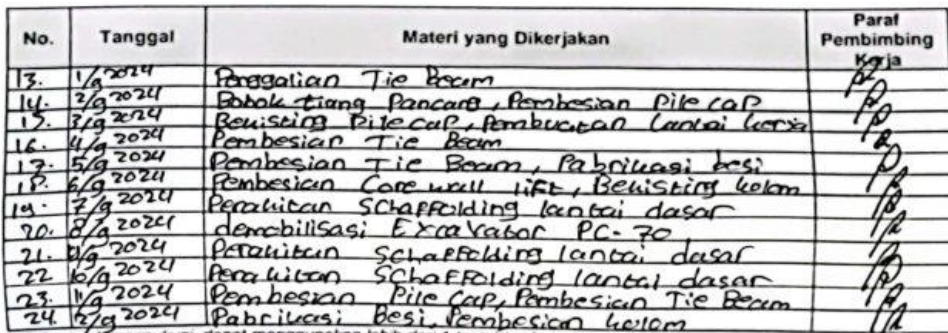 No. Tanggal Materi yang Dikerjakan Paraf Pembimbing Kerja
13. 1/9 2024 Penggalian Tie Beam
14. 2/9 2024 Bobok tiang Pancang, Pembesian Pile cap
15. 3/9 2024 Bekisting Pile cap, Pembuatan lantai kerja
16. 4/9 2024 Pembesian Tie Beam
17. 5/9 2024 Pembesian Tie Beam, Pabrikasi besi
18. 6/9 2024 Pembesian Core wall lift, Bekisting kolom
19. 7/9 2024 Perakitan Schaffolding lantai dasar
20. 8/9 2024 demobilisasi Excavator PC-70
21. 9/9 2024 Perakitan Schaffolding lantai dasar
22 10/9 2024 Perakitan Schaffolding lantai dasar
23. 11/9 2024 Pembesian Pile Cap, Pembesian Tie Beam
24. 12/9 2024 Pabrikasi Besi, Pembesian kolom